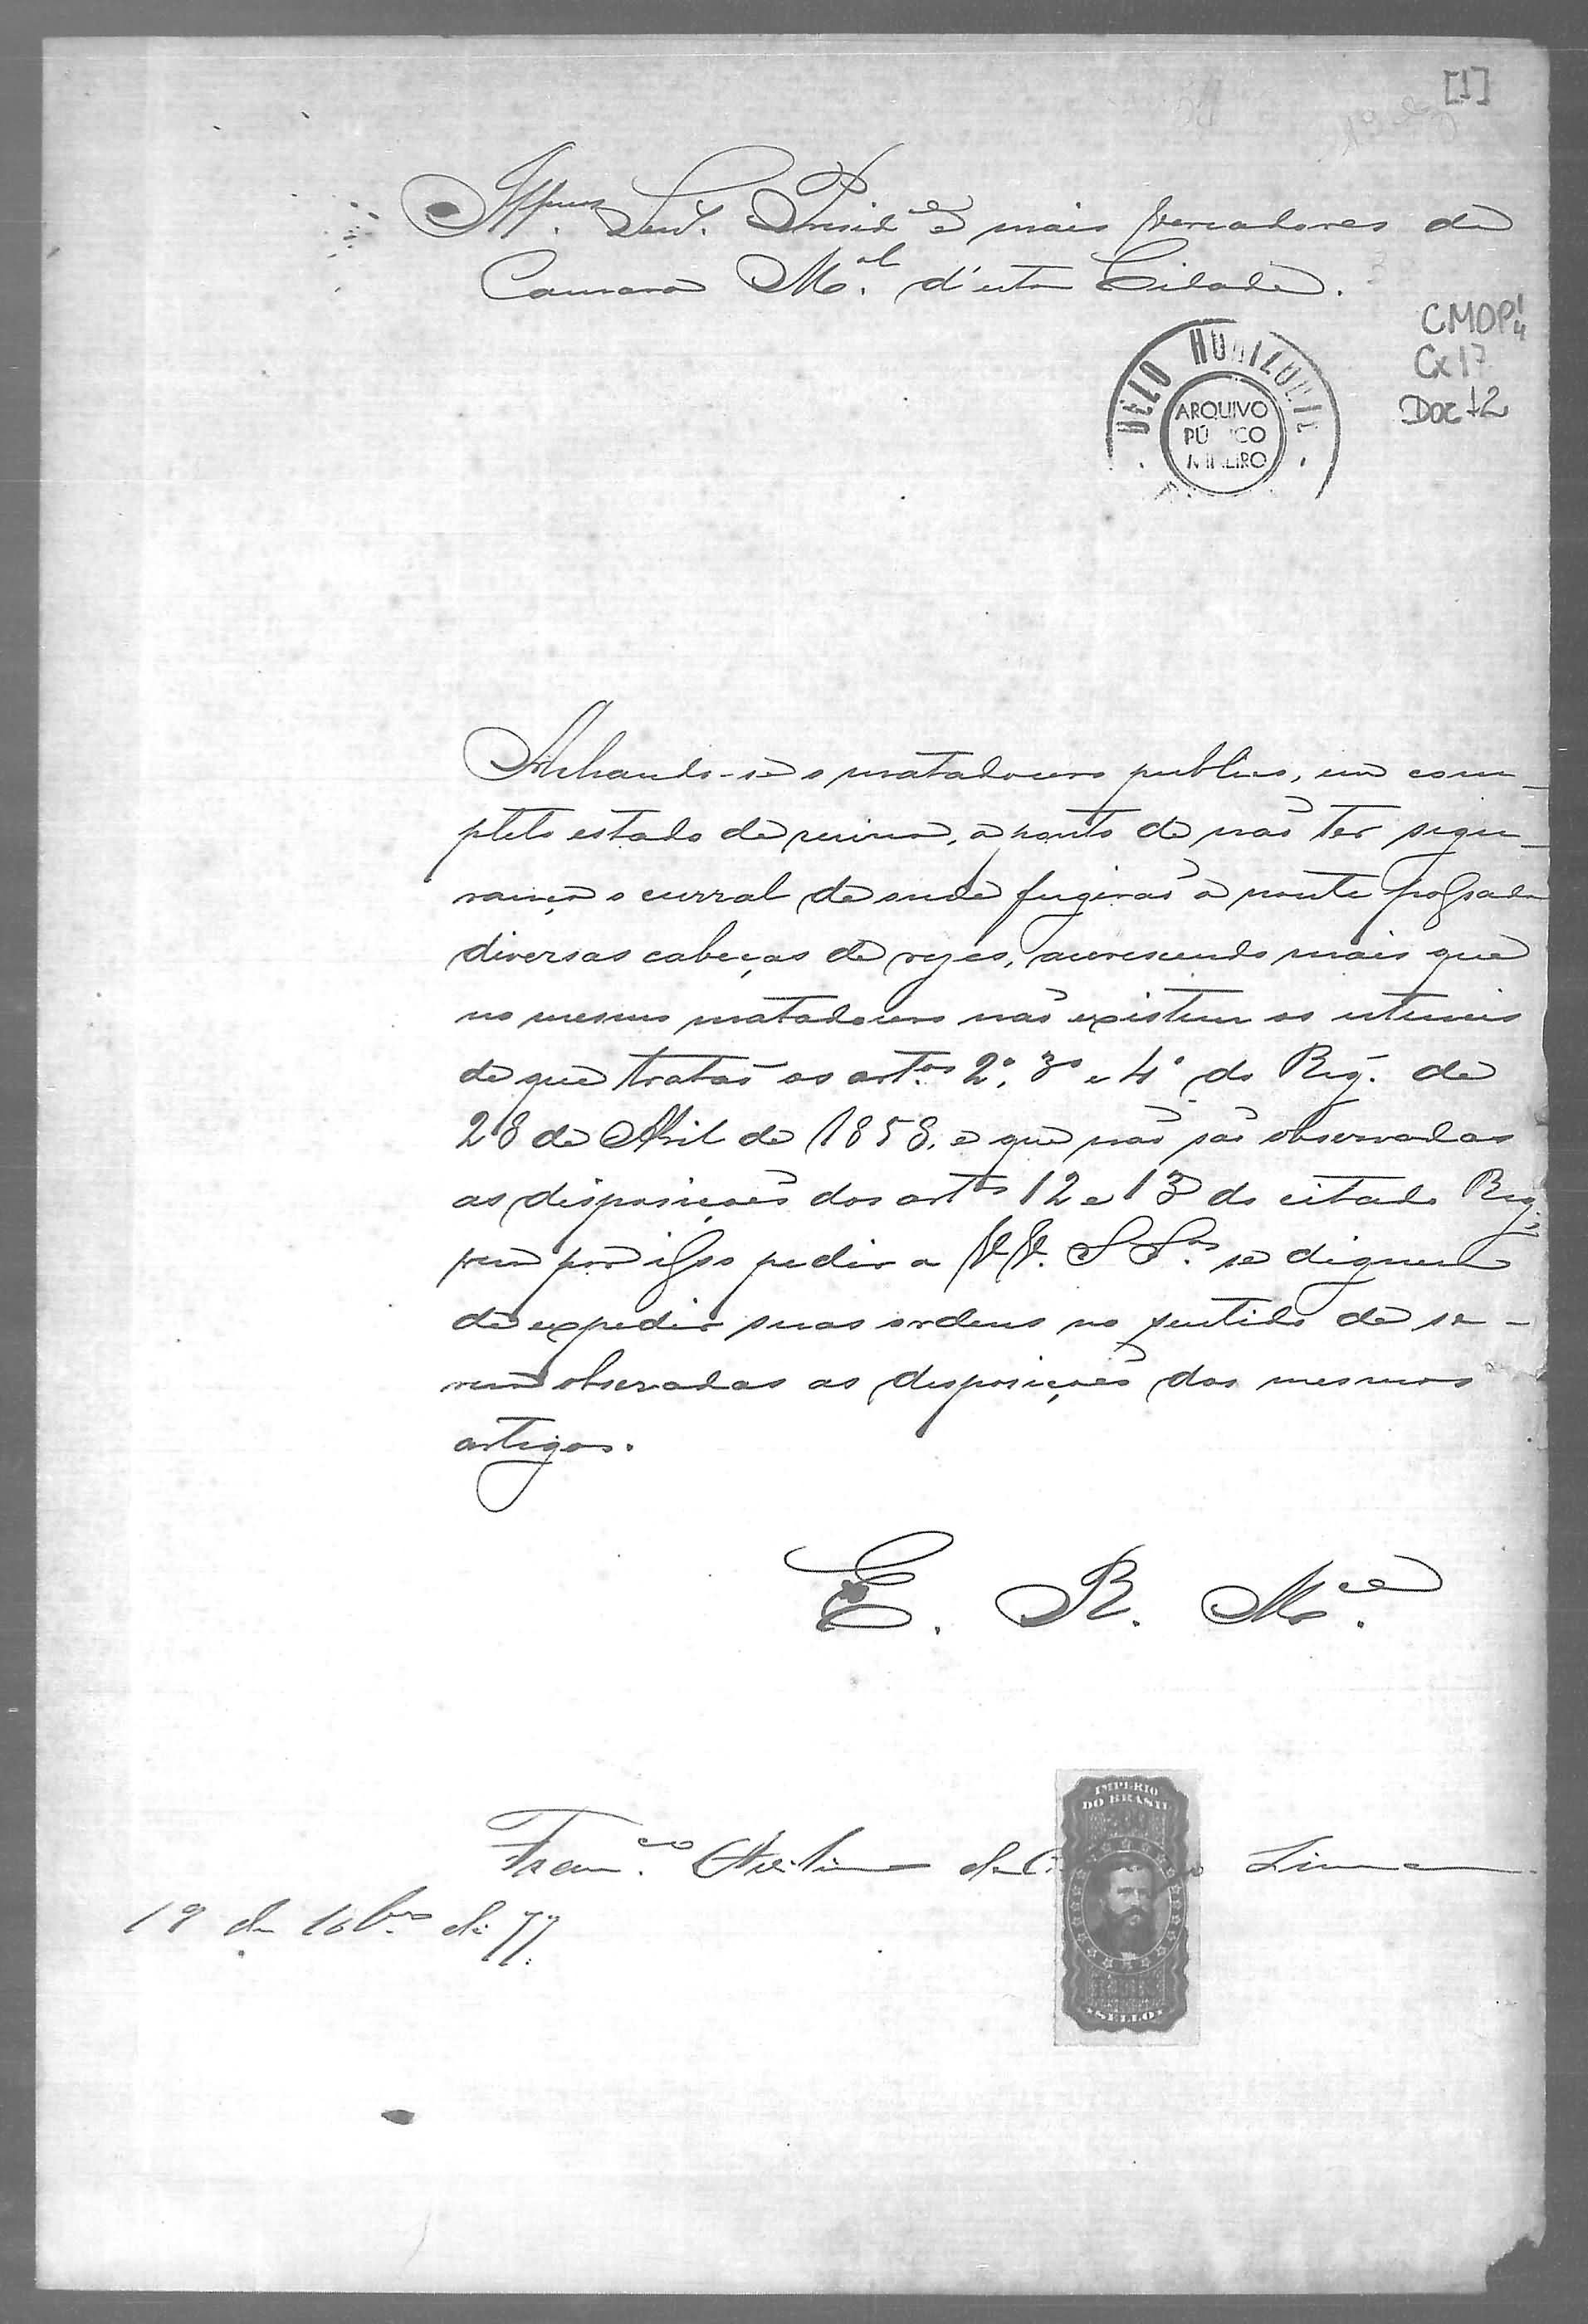 [1]
Illmos Snr. Presid.e e mais Vereadores da
Camara M.al d'esta Cidade.
CMOP 1/4
Cx 17
Doc 12
BELO HORIZONTE
ARQUIVO
PÚBLICO
MINEIRO
Achando-se o matadouro publico, em com-
pleto estado de ruina, a ponto de não ter segu-
rança o curral de onde fugirão a noute passada
diversas cabeças de rezes, accrescendo mais que
no mesmo matadouro não existem os utensis
de que tratão os art.os 2º, 3º e 4º do Reg. de
28 de Abril de 1858, e que não são observadas
as disposições dos art.os 12 e 13 do citado Reg.
vem por isso pedir a VV. SS.as se dignem
de expedir suas ordens no sentido de se-
rem observadas as disposições dos mesmos
artigos.
E. R. M.ce
IMPERIO
DO BRASIL
Fran.co de Lima
19 de 10br.o de 77.
SELLO